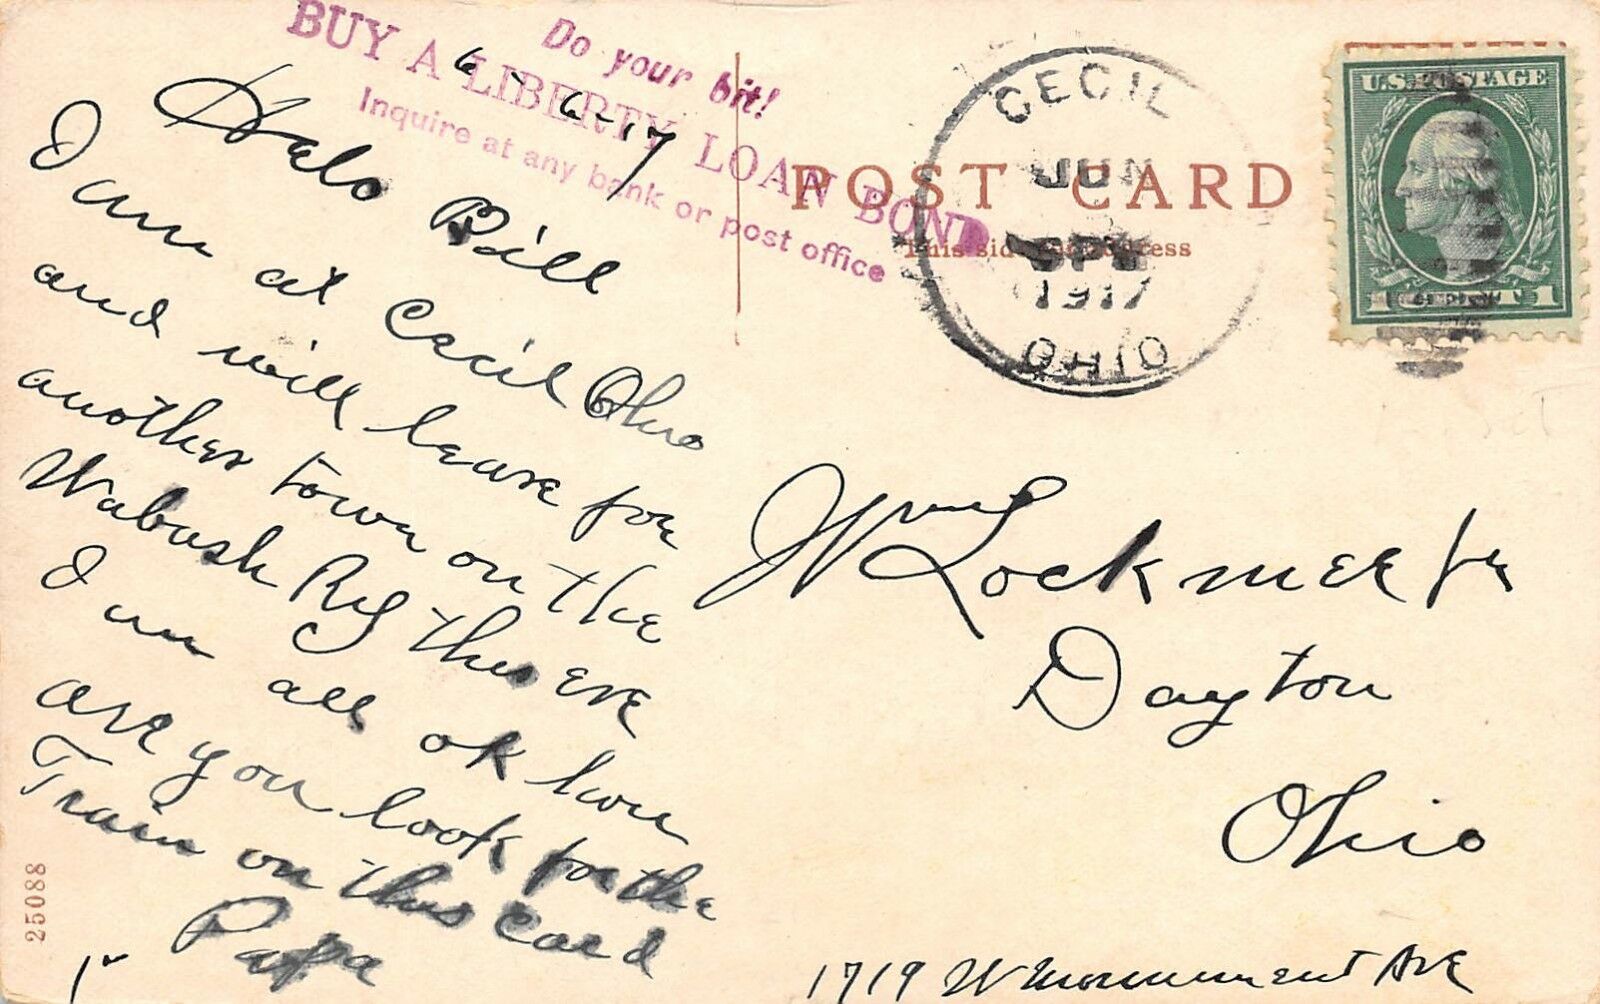 Do your bit!
BUY A LIBERTY LOAN BOND
Inquire at any bank or post office
6-6-17
Helo Bill
I am at Cecil Ohio
and will leave for
another town on the
Wabash Ry this eve
I am all ok how
are you look for the
Train on this card
Papa
25088
POST CARD
This side address
CECIL
JUN
6
5PM
1917
OHIO
U.S. POSTAGE
1 CENT 1
Wm Lockmer Jr
Dayton
Ohio
1719 W Monument Ave